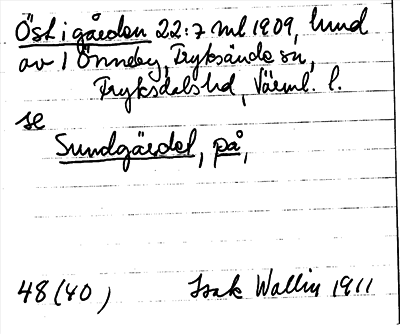 Öst i gården 22:7 ml 1909, hund
av 1 Önneby, Fryksände sn,
Fryksdals hd, Värml. l.
se
Sundgärdet, på,
48 (40) Isak Wallin 1911